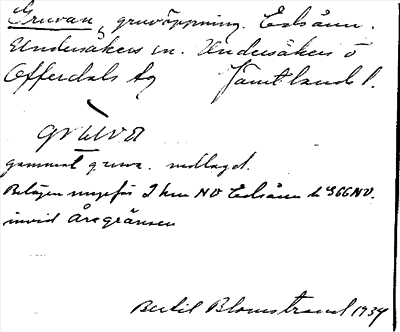 Gruvan, gruvöppning. Edsåsen.
Undersåkers sn. Undersåkers o
Offerdals tg Jämtlands l.
gruva
gammal gruva. nedlagd.
Belägen ungefär 2 km NV Edsåsen h 566 NV.
invid Åregränsen
Bertil Blomstrand 1934